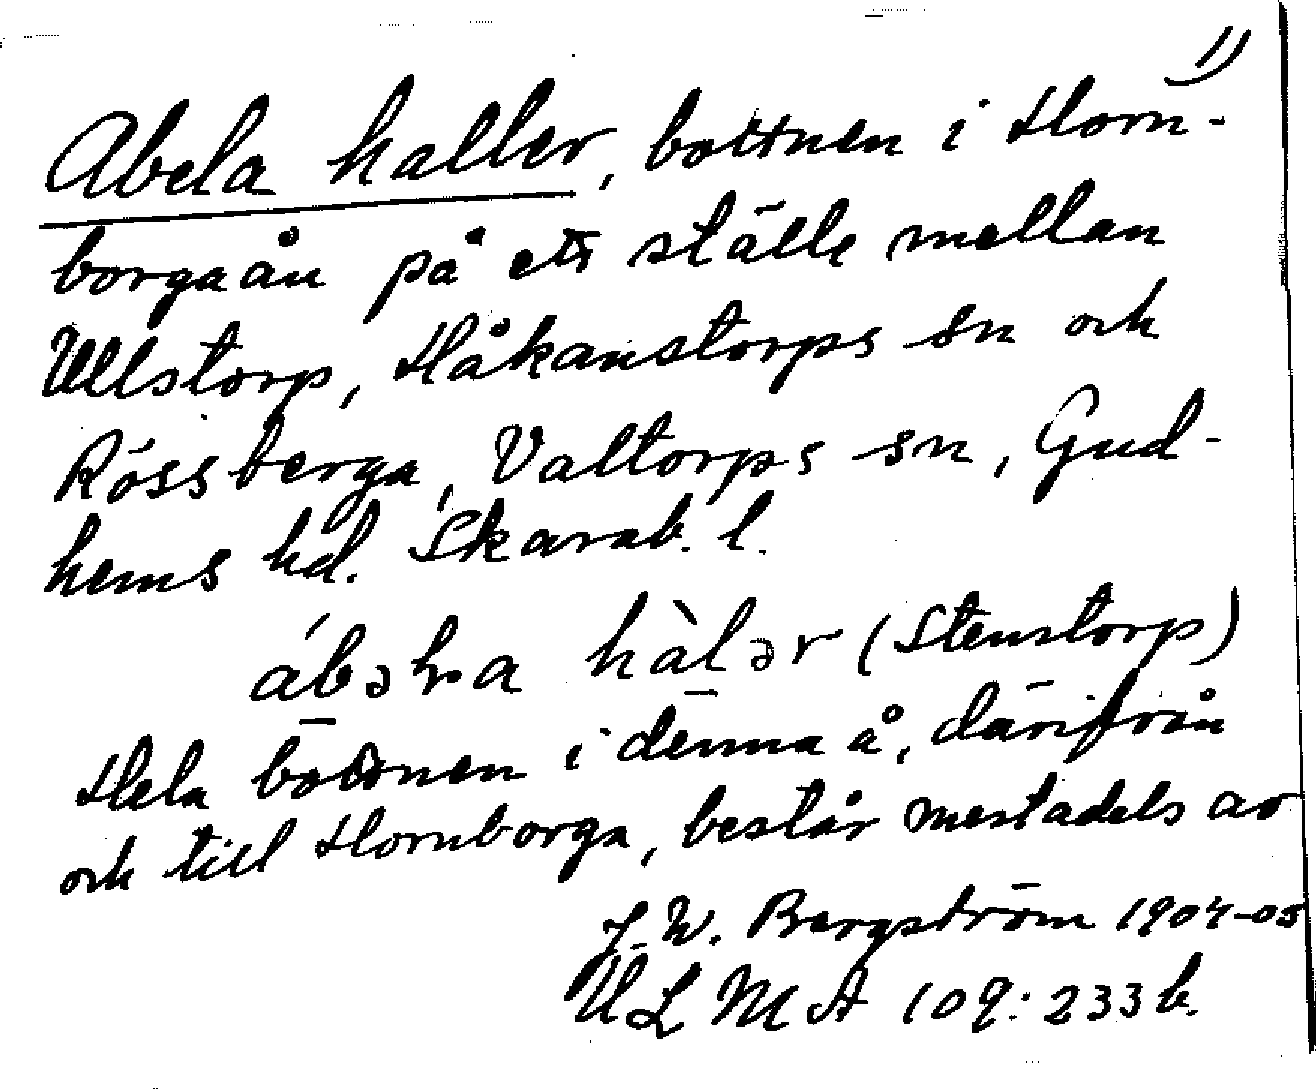 1)
Abela haller, bottnen i Horn-
borgaån på ett ställe mellan
Ullstorp, Håkanstorps sn och
Rössberga, Valtorps sn, Gud-
hems hd. Skarab. l.
(Stenstorp)
Hela bottnen i denna å, därifrån
och till Hornborga, består mestadels av
J. W. Bergström 1904-05
ULMA 109: 233 b.